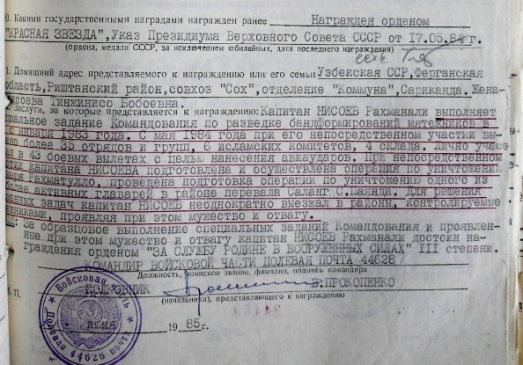 0. Какими государственными наградами награжден ранее Награжден орденом
"КРАСНАЯ ЗВЕЗДА", Указ Президиума Верховного Совета СССР от 17.05.84г.
(ордена, медали СССР, за исключением юбилейных, дата последнего награждения)
1. Домашний адрес представляемого к награждению или его семьи Узбекская ССР, Ферганская
область, Риштанский район, совхоз "Сох", отделение "Коммуна", Сариканда. Жена-
Тинжинисо Бобоевна.
Заслуги, за которые представляется к награждению: Капитан НИСОЕВ Рахманали выполняет
специальное задание Командования по разведке бандформирований мятежников в
января 1983 года. С мая 1984 года при его непосредственном участии вы-
более 35 отрядов и групп, 6 исламских комитетов, 4 склада. Лично участ-
в 43 боевых вылетах с целью нанесения авиаударов. При непосредственном
капитана НИСОЕВА подготовлена и осуществлена операция по уничтожению
Рахматулло, проведена подготовка операции по уничтожению одного из
более активных главарей в районе перевала Саланг С.Маинца. Для решения
задач капитан НИСОЕВ неоднократно выезжал в районы, контролируемые
проявляя при этом мужество и отвагу.
За образцовое выполнение специальных заданий Командования и проявлен-
ные при этом мужество и отвагу капитан НИСОЕВ Рахманали достоин на-
граждения орденом "ЗА СЛУЖБУ РОДИНЕ В ВООРУЖЕННЫХ СИЛАХ" III степени.
КОМАНДИР ВОЙСКОВОЙ ЧАСТИ ПОЛЕВАЯ ПОЧТА 44628
Должность, воинское звание, фамилия, подпись командира
ПОЛКОВНИК В.ПРОКОПЕНКО
(начальника), представляющего к награждению
М.П.
июня 1985г.
Войсковая часть
Полевая 44628